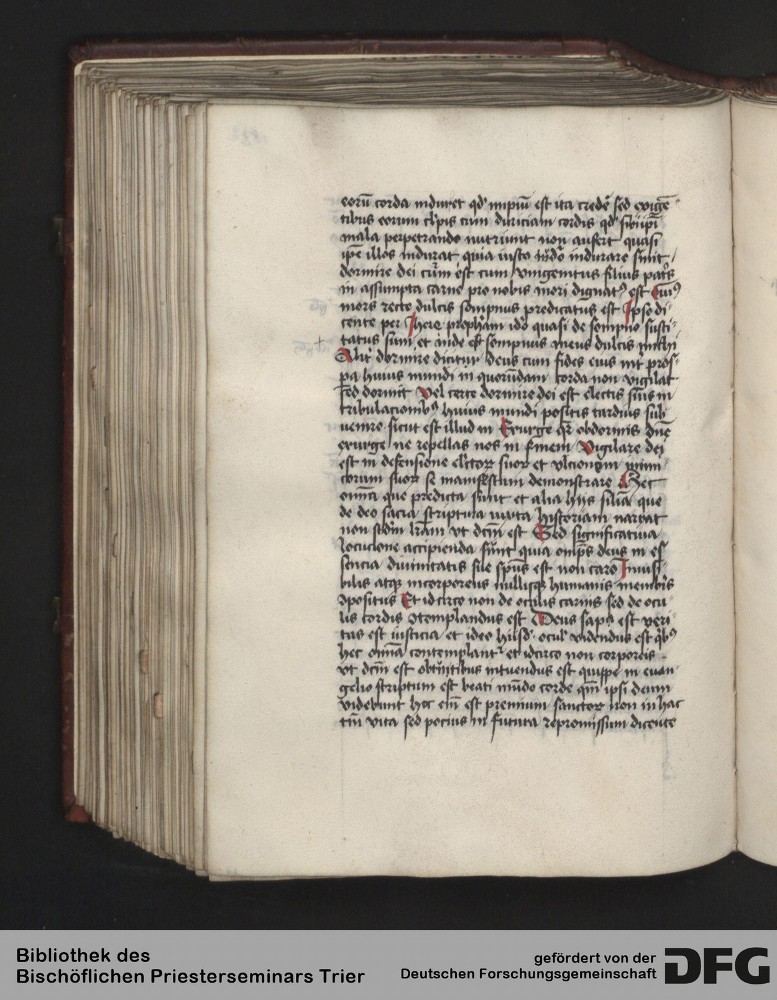 eorū corda induret qd' impiū est ita credē sed exigē
tibus eorum cl'pis cum duriciam cordis qd' sibiip̄i
mala perpetrando nutriunt non aufert quasi
ip̄e illos indurat quia iusto iudīo indurare sinit
dormire dei cūm est cum vnigenitus filius patͥs
in assumpta carne pro nobis mori dignatꝰ est Cuiꝰ
mors recte dulcis sompnus predicatus est Ipso di
cente per Jhere prophām idō quasi de sompno susci
tatus sum et inde est sompnus meus dulcis michi
+
Alit' dormire dicitur deus cum fides eius int' pros
pa huius mundi in quorūdam corda non vigilat
sed dormit Vel certe dormire dei est electis suis in
tribulacionibꝰ huius mundi positis tardius sub
uenire sicut est illud in Exurge qr̄ obdormis dn̄e
exurge ne repellas nos in finem Vigilare dei
est in defensione el'ctoꝝ suoꝝ et vlcionem inimi
corum suoꝝ se manifestum demonstrare Hec
omīa que predicta sunt et alia hijs sil'ia que
de deo sacra scriptura iuxta historiam narrat
non scd'm lr̄am vt dcm̄ est Sed significatiua
locucione accipienda sunt quia omp̄s deus in es
sencia diuinitatis sue spūs est non caro Inuisi
bilis atqꝫ incorporeus nullisqꝫ humanis membͥs
ꝯpositus Et idcirco non de oculis carnis sed de ocu
lis cordis ꝯtemplandus est Deus sap̄a est veri
tas est iusticia et ideo huiꝰd' ocul' videndus est qͥbꝰ
hec omīa contemplantʳ et idcirco non corporeis
vt dcm̄ est obtutibus intuendus est quippe in euan
gelio scriptum est beati mūdo corde qm̄ ipsi deum
videbunt hoc eīm est premium sanctoꝝ non in hac
tm̄ vita sed pocius in futura repromissum dicente
Bibliothek des
Bischöflichen Priesterseminars Trier
gefördert von der
Deutschen Forschungsgemeinschaft
DFG